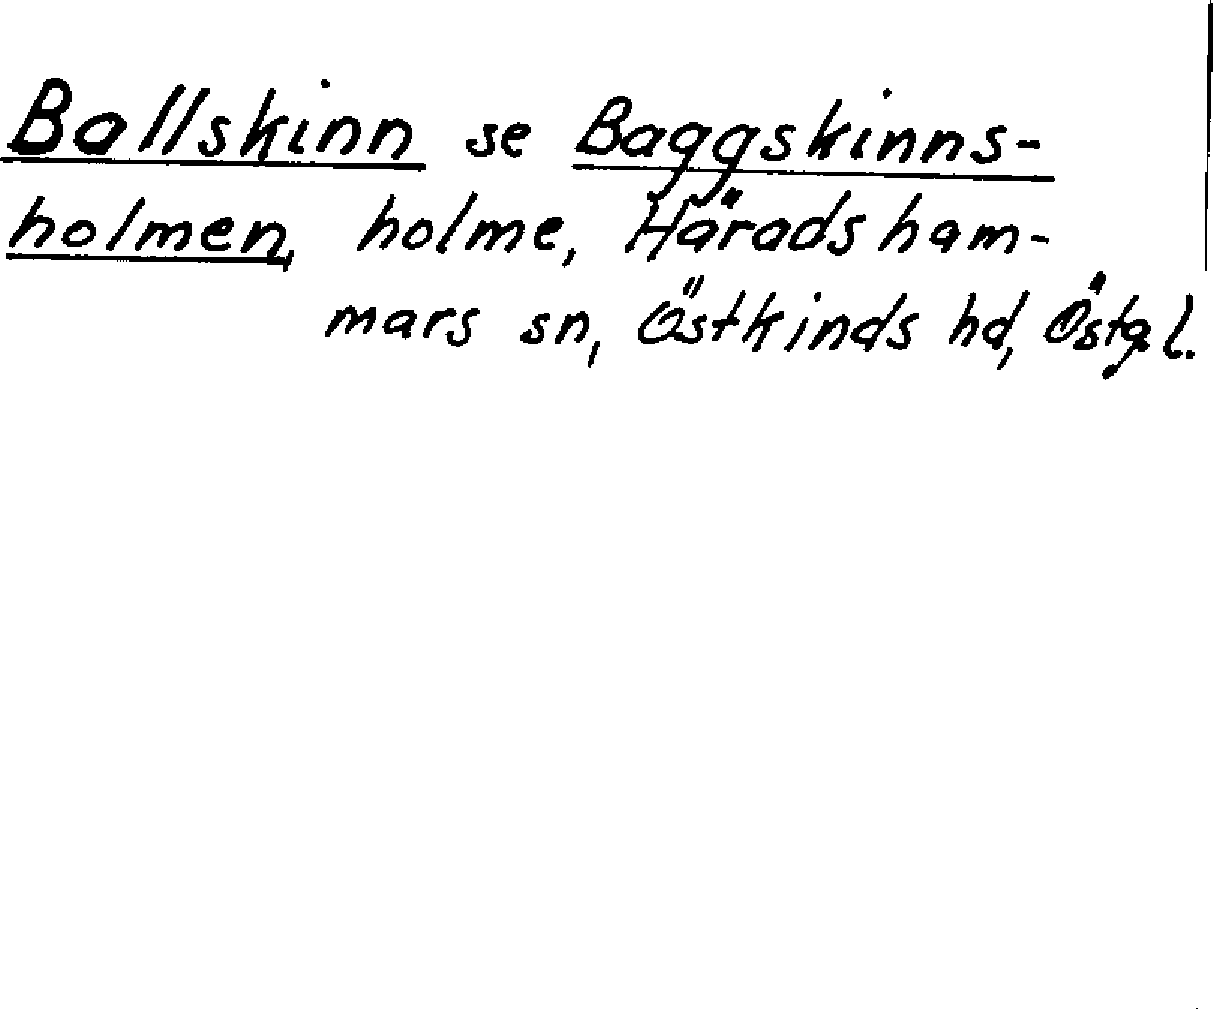 Ballskinn se Baggskinns-
holmen, holme, Häradsham-
mars sn, Östkinds hd, Östgl.